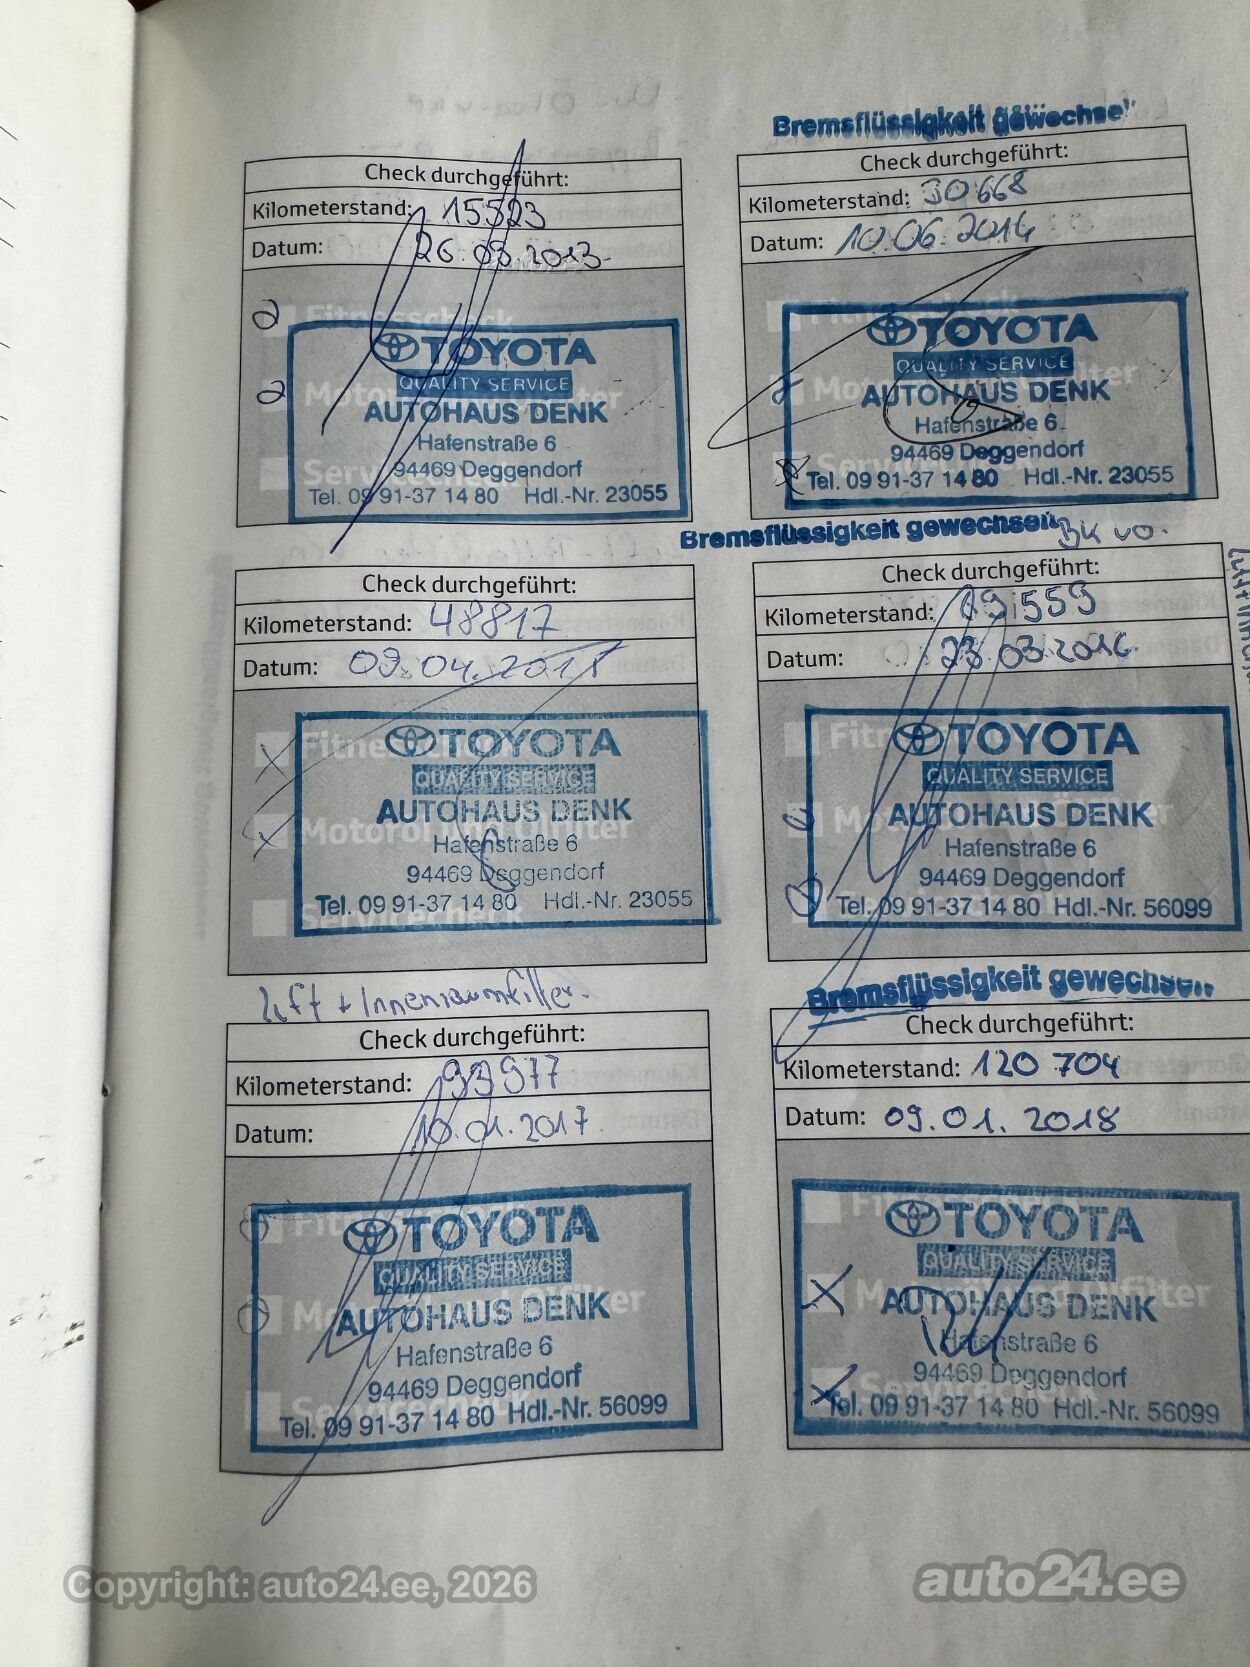 Bremsflüssigkeit gewechsel
Check durchgeführt:
Kilometerstand: 15523
Datum: 26.03.2013
Fitnesscheck
Motoröl und Ölfilter
Servicecheck
TOYOTA
QUALITY SERVICE
AUTOHAUS DENK
Hafenstraße 6
94469 Deggendorf
Tel. 09 91-37 14 80 Hdl.-Nr. 23055
Check durchgeführt:
Kilometerstand: 30668
Datum: 10.06.2014
Fitnesscheck
Motoröl und Ölfilter
Servicecheck
TOYOTA
QUALITY SERVICE
AUTOHAUS DENK
Hafenstraße 6
94469 Deggendorf
Tel. 09 91-37 14 80 Hdl.-Nr. 23055
Bremsflüssigkeit gewechselt
Check durchgeführt:
Kilometerstand: 48817
Datum: 09.04.2015
Fitnesscheck
Motoröl und Ölfilter
Servicecheck
TOYOTA
QUALITY SERVICE
AUTOHAUS DENK
Hafenstraße 6
94469 Deggendorf
Tel. 09 91-37 14 80 Hdl.-Nr. 23055
Check durchgeführt:
Kilometerstand: 69559
Datum: 23.03.2016
TOYOTA
QUALITY SERVICE
AUTOHAUS DENK
Hafenstraße 6
94469 Deggendorf
Tel. 09 91-37 14 80 Hdl.-Nr. 56099
Luft + Innenraumfilter.
Check durchgeführt:
Kilometerstand: 93977
Datum: 10.01.2017
Motoröl und Ölfilter
Servicecheck
TOYOTA
QUALITY SERVICE
AUTOHAUS DENK
Hafenstraße 6
94469 Deggendorf
Tel. 09 91-37 14 80 Hdl.-Nr. 56099
Bremsflüssigkeit gewechselt
Check durchgeführt:
Kilometerstand: 120 704
Datum: 09.01.2018
Fitnesscheck
Motoröl und Ölfilter
Servicecheck
TOYOTA
QUALITY SERVICE
AUTOHAUS DENK
Hafenstraße 6
94469 Deggendorf
Tel. 09 91-37 14 80 Hdl.-Nr. 56099
Copyright: auto24.ee, 2026
auto24.ee